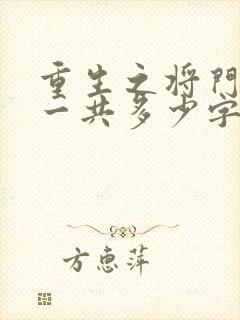 重生之将门
一共多少字
方惠萍